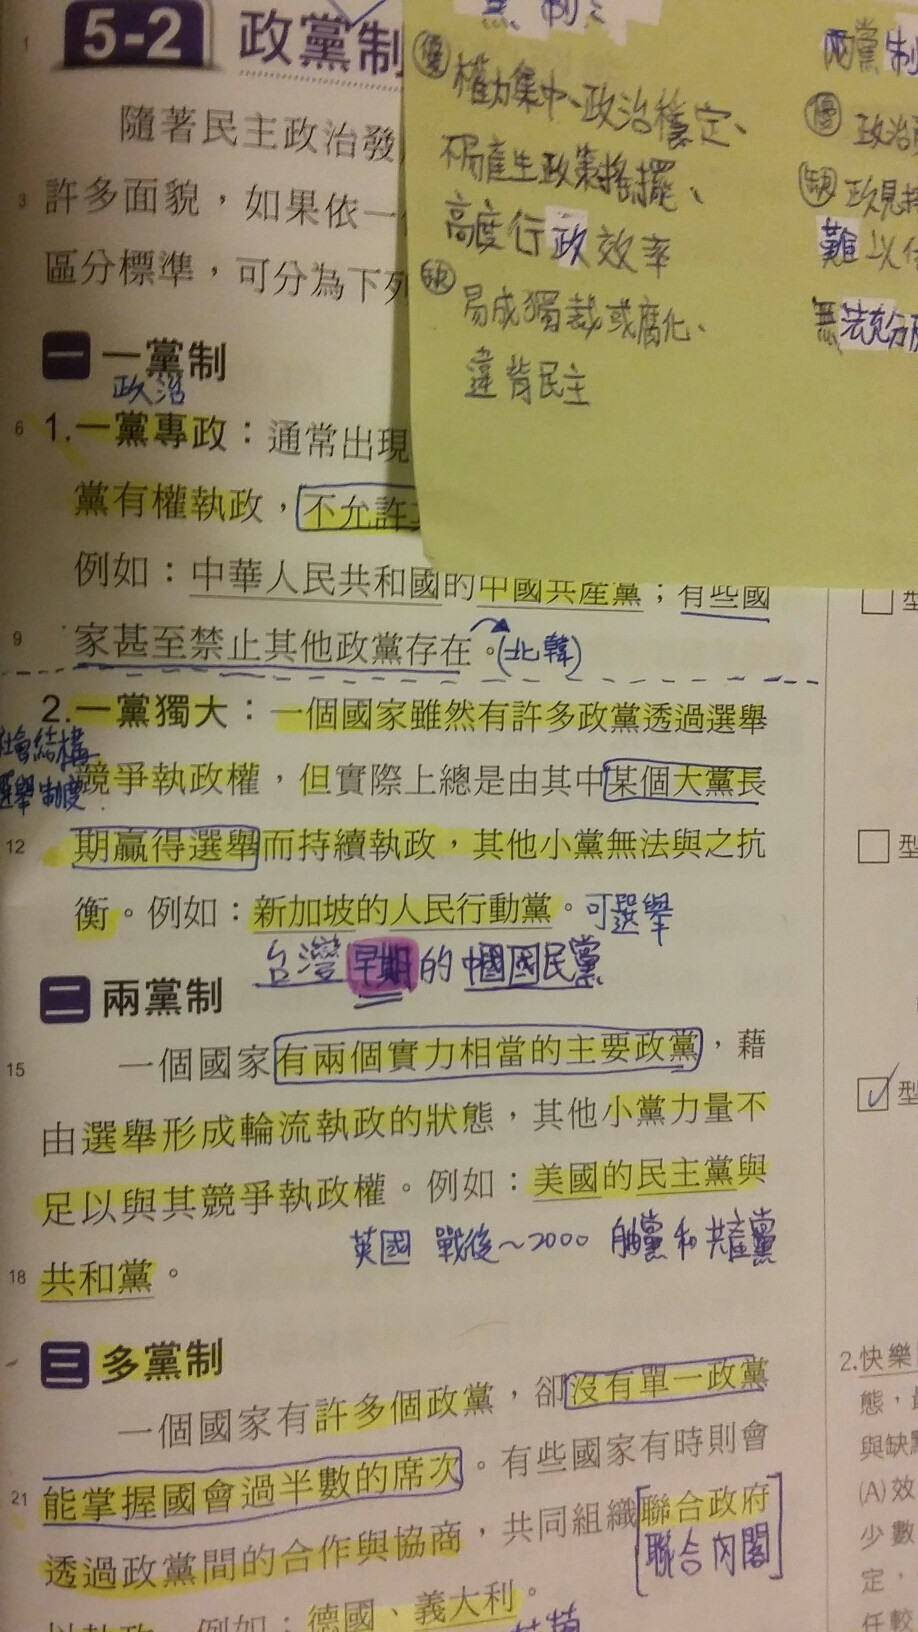 5-2 政黨制
隨著民主政治發
許多面貌，如果依一
區分標準，可分為下列
一 一黨制
政治
1.一黨專政：通常出現
黨有權執政，不允許
例如：中華人民共和國的中國共產黨；有些國
家甚至禁止其他政黨存在。(北韓)
2.一黨獨大：一個國家雖然有許多政黨透過選舉
社會結構
選舉制度
競爭執政權，但實際上總是由其中某個大黨長
期贏得選舉而持續執政，其他小黨無法與之抗
衡。例如：新加坡的人民行動黨。可選舉
台灣早期的中國國民黨
二 兩黨制
一個國家有兩個實力相當的主要政黨，藉
由選舉形成輪流執政的狀態，其他小黨力量不
足以與其競爭執政權。例如：美國的民主黨與
英國 戰後~2000 和共產黨
共和黨。
三 多黨制
一個國家有許多個政黨，卻沒有單一政黨
能掌握國會過半數的席次。有些國家有時則會
透過政黨間的合作與協商，共同組織聯合政府
[聯合內閣]
例如：德國、義大利。
制：
優 權力集中、政治穩定、
不易產生政策搖擺、
高度行政效率
缺 易成獨裁或腐化、
違背民主
兩黨制
優 政治
缺 政見
難以
無法充分
型
型
型
2.快樂
態，
與缺點
(A)效
少數
定，
任較
1
3
6
9
12
15
18
21